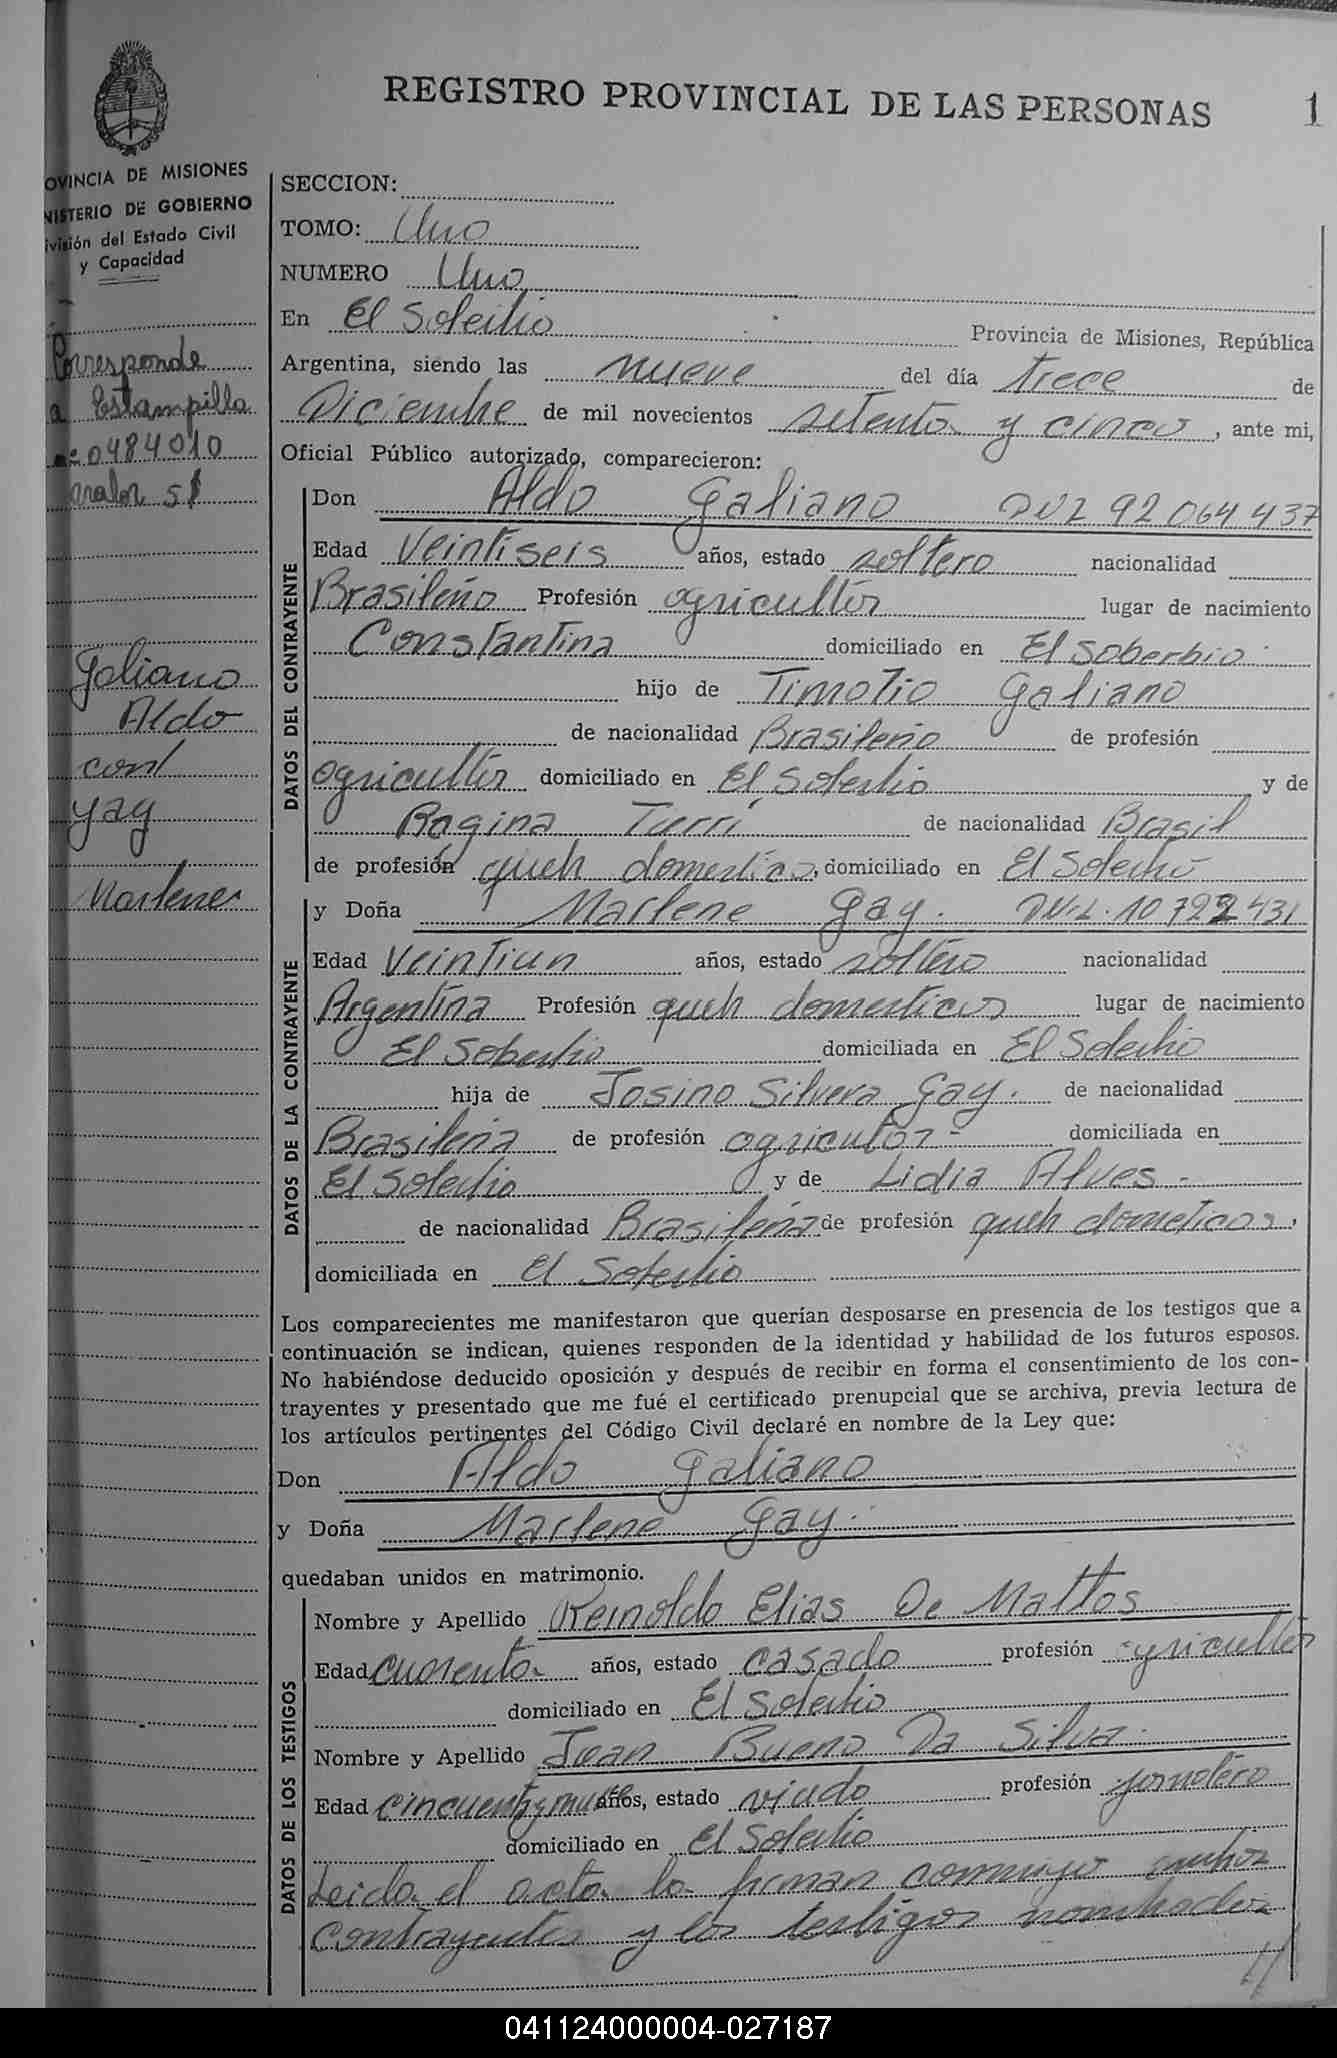 REGISTRO PROVINCIAL DE LAS PERSONAS 1
OVINCIA DE MISIONES
NISTERIO DE GOBIERNO
ivisión del Estado Civil
y Capacidad
Corresponde
a Estampilla
0484010
valor 5$
Galiano
Aldo
con
Gay
Marlene
SECCION:
TOMO: Uno
NUMERO Uno
En El Soberbio Provincia de Misiones, República
Argentina, siendo las nueve del día trece de
Diciembre de mil novecientos setenta y cinco, ante mi,
Oficial Público autorizado, comparecieron:
DATOS DEL CONTRAYENTE
Don Aldo Galiano DNI 92 064 437
Edad Veintiseis años, estado soltero nacionalidad
Brasileño Profesión agricultor lugar de nacimiento
Constantina domiciliado en El Soberbio
hijo de Timotio Galiano
de nacionalidad Brasileño de profesión
agricultor domiciliado en El Soberbio y de
Ragina Turri de nacionalidad Brasil
de profesión queh domesticos, domiciliado en El Soberbio
DATOS DE LA CONTRAYENTE
y Doña Marlene Gay. DN.I. 10 722 431
Edad Veintiun años, estado soltero nacionalidad
Argentina Profesión queh domesticos lugar de nacimiento
El Soberbio domiciliada en El Soberbio
hija de Josino Silvera Gay. de nacionalidad
Brasileña de profesión agricultor - domiciliada en
El Soberbio y de Lidia Alves -
de nacionalidad Brasileña de profesión queh dometicos,
domiciliada en El Soberbio
Los comparecientes me manifestaron que querían desposarse en presencia de los testigos que a
continuación se indican, quienes responden de la identidad y habilidad de los futuros esposos.
No habiéndose deducido oposición y después de recibir en forma el consentimiento de los con-
trayentes y presentado que me fué el certificado prenupcial que se archiva, previa lectura de
los artículos pertinentes del Código Civil declaré en nombre de la Ley que:
Don Aldo Galiano
y Doña Marlene Gay.
quedaban unidos en matrimonio.
DATOS DE LOS TESTIGOS
Nombre y Apellido Reinoldo Elias De Mattos
Edad cuarenta años, estado casado profesión agricultor
domiciliado en El Soberbio
Nombre y Apellido Juan Bueno Da Silva.
Edad cincuenta y nueve años, estado viudo profesión jornolero
domiciliado en El Soberbio
Leida el acta la firman conmigo ambos
contrayentes y los testigos nombrados
041124000004-027187